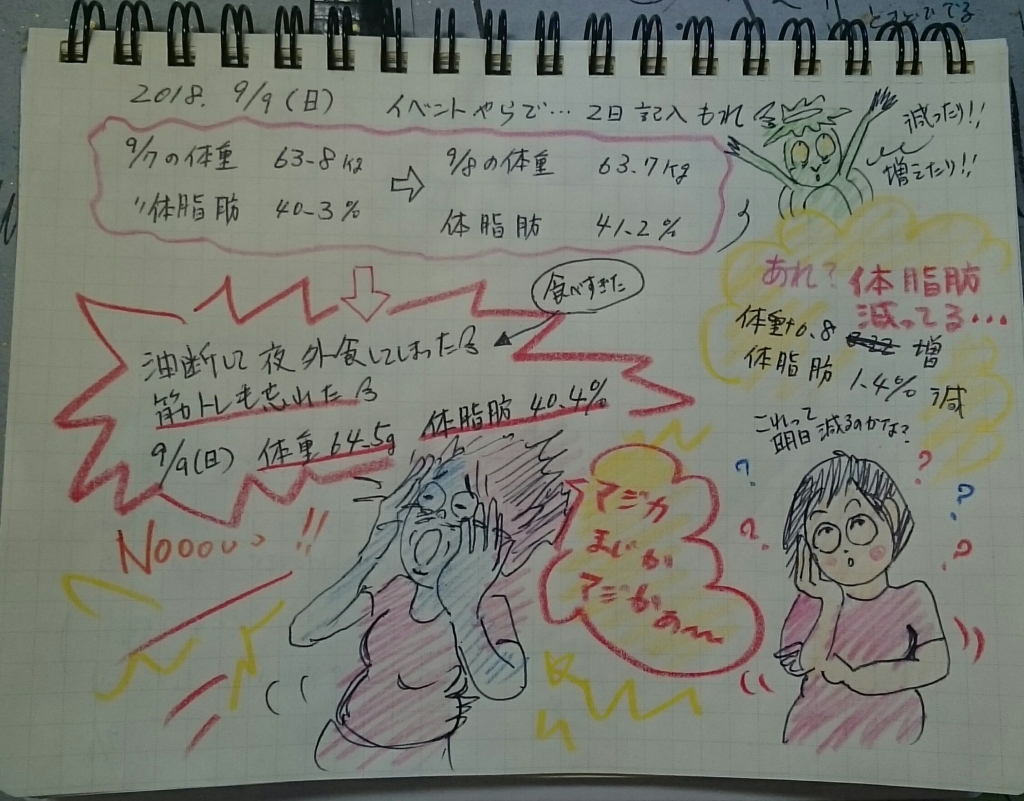 2018. 9/9(日)
イベントやらで… 2日記入もれ
9/7の体重 63.8kg ⇨ 9/8の体重 63.7kg
〃体脂肪 40.3% 体脂肪 41.2%
減ったり!!
増えたり!!
食べすぎた
油断して夜外食してしまった
筋トレも忘れた
9/9(日) 体重64.5g 体脂肪40.4%
あれ? 体脂肪
減ってる…
体重+0.8 増
体脂肪 1.4% 減
これって
明日減るのかな?
Nooooo!!
マジか
まじか
マジかぁ〜